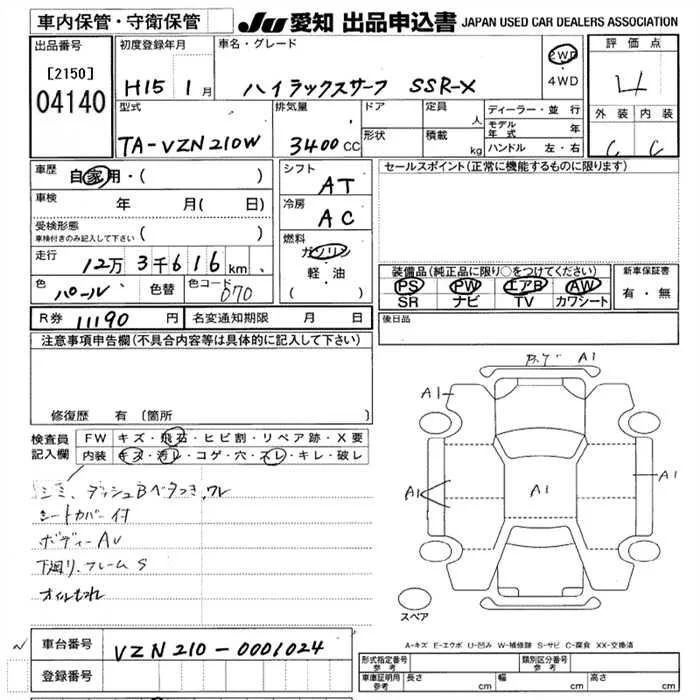 車内保管・守衛保管 JU 愛知 出品申込書 JAPAN USED CAR DEALERS ASSOCIATION
出品番号 初度登録年月 車名・グレード 評価点
[2150] H15 1月 ハイラックスサーフ SSR-X 2WD 4WD 4
04140 外装 内装
型式 排気量 ドア 定員 人 ディーラー・並行
TA-VZN210W 3400cc 形状 積載 kg モデル年式 年
ハンドル 左・右 C C
車歴 自家用・( ) シフト AT セールスポイント(正常に機能するものに限ります)
車検 年 月( 日) 冷房 AC
受検形態
車検付きのみ記入して下さい ( ) 燃料 ガソリン
走行 12万3千616km 軽・油
( ) 装備品(純正品に限り○をつけてください) 新車保証書
色 パール 色替 色コード 070 PS PW エアB AW 有・無
SR ナビ TV カワシート
R券 11190円 名変通知期限 月 日 後日品
注意事項申告欄(不具合内容等は具体的に記入して下さい)
修復歴 有 [箇所 ]
検査員 FW キズ・飛石・ヒビ割・リペア跡・X要
記入欄 内装 キズ・汚レ・コゲ・穴・スレ・キレ・破レ
シミ、ダッシュBベタつき,ワレ
シートカバー付
ボディーAU
下廻り.フレームS
オイルもれ
A1
A1
A1
A1
A1
スペア
A-キズ E-エクボ U-凹み W-補修跡 S-サビ C-腐食 XX-交換済
車台番号 VZN210-0001024
登録番号
形式指定番号 参考 類別区分番号 参考
車庫証明用 参考 長さ cm 幅 cm 高さ cm